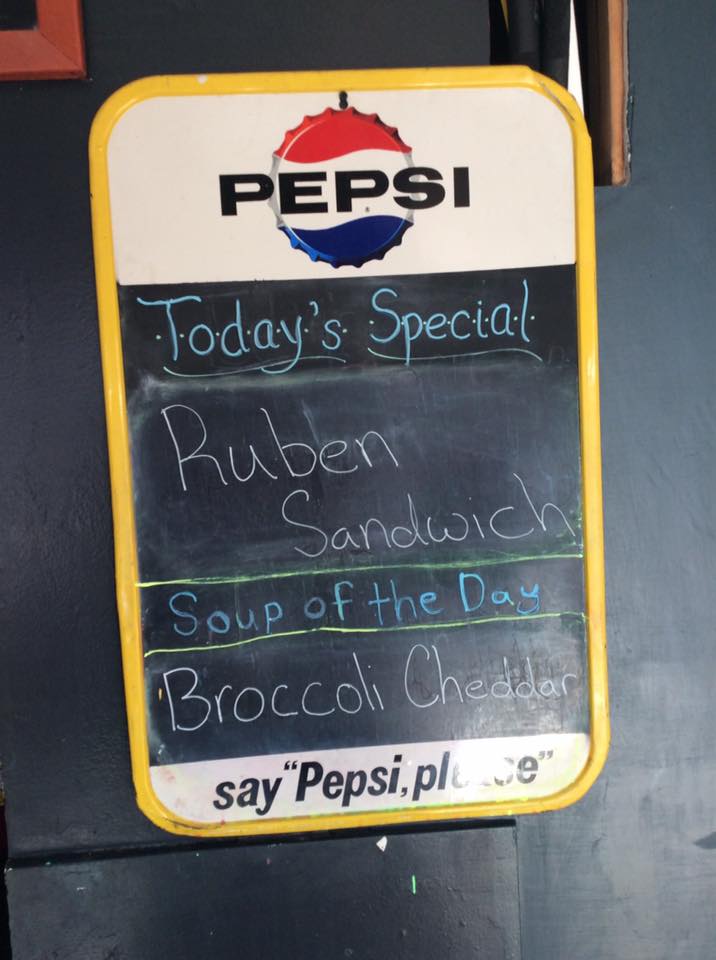 PEPSI
Today's Special
Ruben
Sandwich
Soup of the Day
Broccoli Cheddar
say "Pepsi, please"